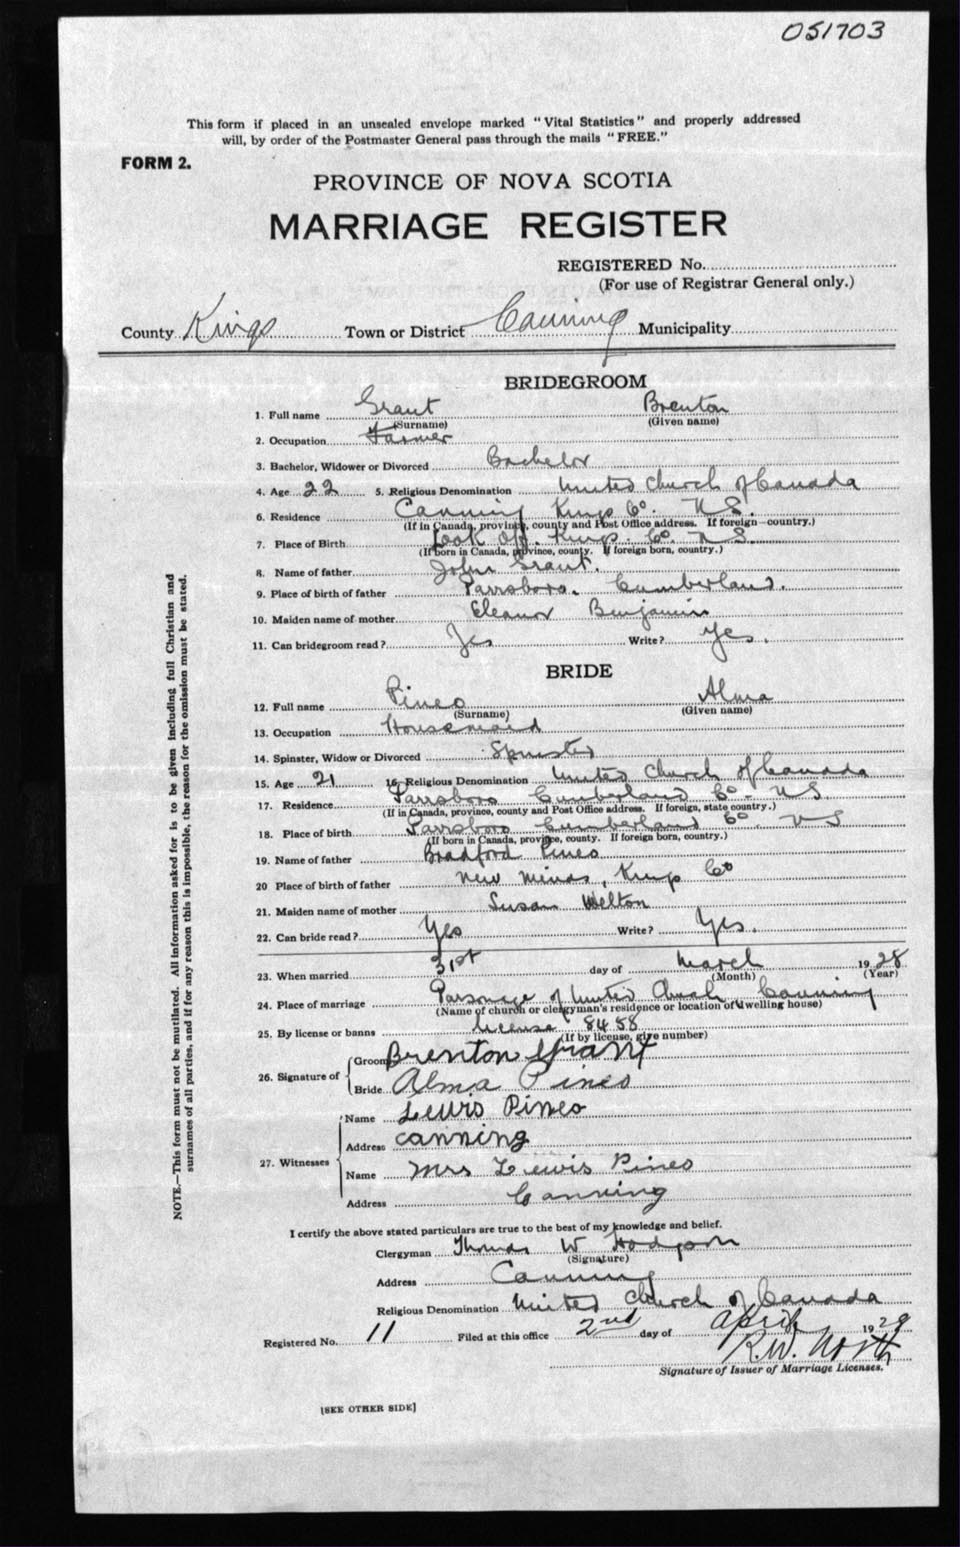 051703
This form if placed in an unsealed envelope marked "Vital Statistics" and properly addressed
will, by order of the Postmaster General pass through the mails "FREE."
FORM 2.
PROVINCE OF NOVA SCOTIA
MARRIAGE REGISTER
REGISTERED No.
(For use of Registrar General only.)
County Kings Town or District Canning Municipality
BRIDEGROOM
1. Full name Grant Brenton
(Surname) (Given name)
2. Occupation Farmer
3. Bachelor, Widower or Divorced Bachelor
4. Age 22 5. Religious Denomination United Church of Canada
6. Residence Canning Kings Co. N.S.
(If in Canada, province, county and Post Office address. If foreign—country.)
7. Place of Birth Look Off. Kings. Co. N.S.
(If born in Canada, province, county. If foreign born, country.)
8. Name of father John Grant.
9. Place of birth of father Parrsboro. Cumberland.
10. Maiden name of mother Eleanor Benjamin
11. Can bridegroom read? Yes Write? Yes.
BRIDE
12. Full name Pineo Alma
(Surname) (Given name)
13. Occupation Housemaid
14. Spinster, Widow or Divorced Spinster
15. Age 21 16. Religious Denomination United Church of Canada
17. Residence Parrsboro Cumberland Co. NS
(If in Canada, province, county and Post Office address. If foreign, state country.)
18. Place of birth Parrsboro Cumberland Co. NS
(If born in Canada, province, county. If foreign born, country.)
19. Name of father Bradford Pineo
20 Place of birth of father New Minas, Kings Co
21. Maiden name of mother Susan Welton
22. Can bride read? Yes Write? Yes.
23. When married 31st day of March 1928
(Month) (Year)
24. Place of marriage Parsonage of United Church Canning
(Name of church or clergyman's residence or location of dwelling house)
25. By license or banns license 8458
(If by license, give number)
26. Signature of Groom Brenton Grant
Bride Alma Pineo
27. Witnesses Name Lewis Pineo
Address canning
Name Mrs Lewis Pineo
Address Canning
I certify the above stated particulars are true to the best of my knowledge and belief.
Clergyman Thomas W Hodgson
(Signature)
Address Canning
Religious Denomination United Church of Canada
Registered No. 11 Filed at this office 2nd day of April 1929
R.W. North
Signature of Issuer of Marriage Licenses.
[SEE OTHER SIDE]
NOTE.—This form must not be mutilated. All information asked for is to be given including full Christian and
surnames of all parties, and if for any reason this is impossible, the reason for the omission must be stated.